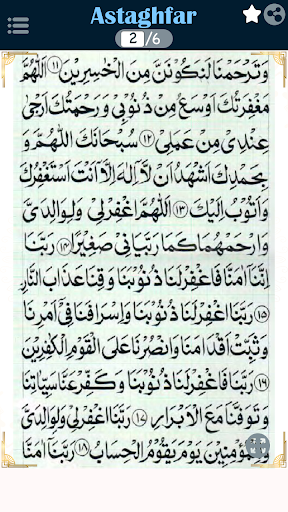 Astaghfar
2 /6
وَتَرْحَمْنَا لَنَكُوْنَنَّ مِنَ الْخٰسِرِيْنَ ﴿۱۱﴾ اَللّٰهُمَّ
مَغْفِرَتُكَ اَوْسَعُ مِنْ ذُنُوْبِيْ وَرَحْمَتُكَ اَرْجٰى
عِنْدِيْ مِنْ عَمَلِيْ ﴿۱۲﴾ سُبْحَانَكَ اللّٰهُمَّ وَ
بِحَمْدِكَ اَشْهَدُ اَنْ لَّا اِلٰهَ اِلَّا اَنْتَ اَسْتَغْفِرُكَ
وَاَتُوْبُ اِلَيْكَ ﴿۱۳﴾ اَللّٰهُمَّ اغْفِرْلِيْ وَلِوَالِدَيَّ
وَارْحَمْهُمَا كَمَا رَبَّيَانِيْ صَغِيْرًا ﴿۱۴﴾ رَبَّنَا
اِنَّنَا اٰمَنَّا فَاغْفِرْلَنَا ذُنُوْبَنَا وَقِنَا عَذَابَ النَّارِ
﴿۱۵﴾ رَبَّنَا اغْفِرْلَنَا ذُنُوْبَنَا وَاِسْرَافَنَا فِيْ اَمْرِنَا
وَثَبِّتْ اَقْدَامَنَا وَانْصُرْنَا عَلَى الْقَوْمِ الْكٰفِرِيْنَ
﴿۱۶﴾ رَبَّنَا فَاغْفِرْلَنَا ذُنُوْبَنَا وَكَفِّرْ عَنَّا سَيِّاٰتِنَا
وَتَوَفَّنَا مَعَ الْاَبْرَارِ ﴿۱۷﴾ رَبَّنَا اغْفِرْلِيْ وَلِوَالِدَيَّ
وَلِلْمُؤْمِنِيْنَ يَوْمَ يَقُوْمُ الْحِسَابُ ﴿۱۸﴾ رَبَّنَا اٰمَنَّا